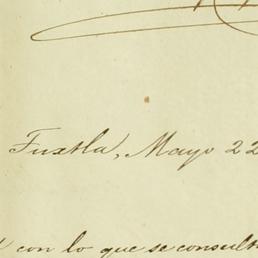 Tuxtla, Mayo 22
con lo que se consult